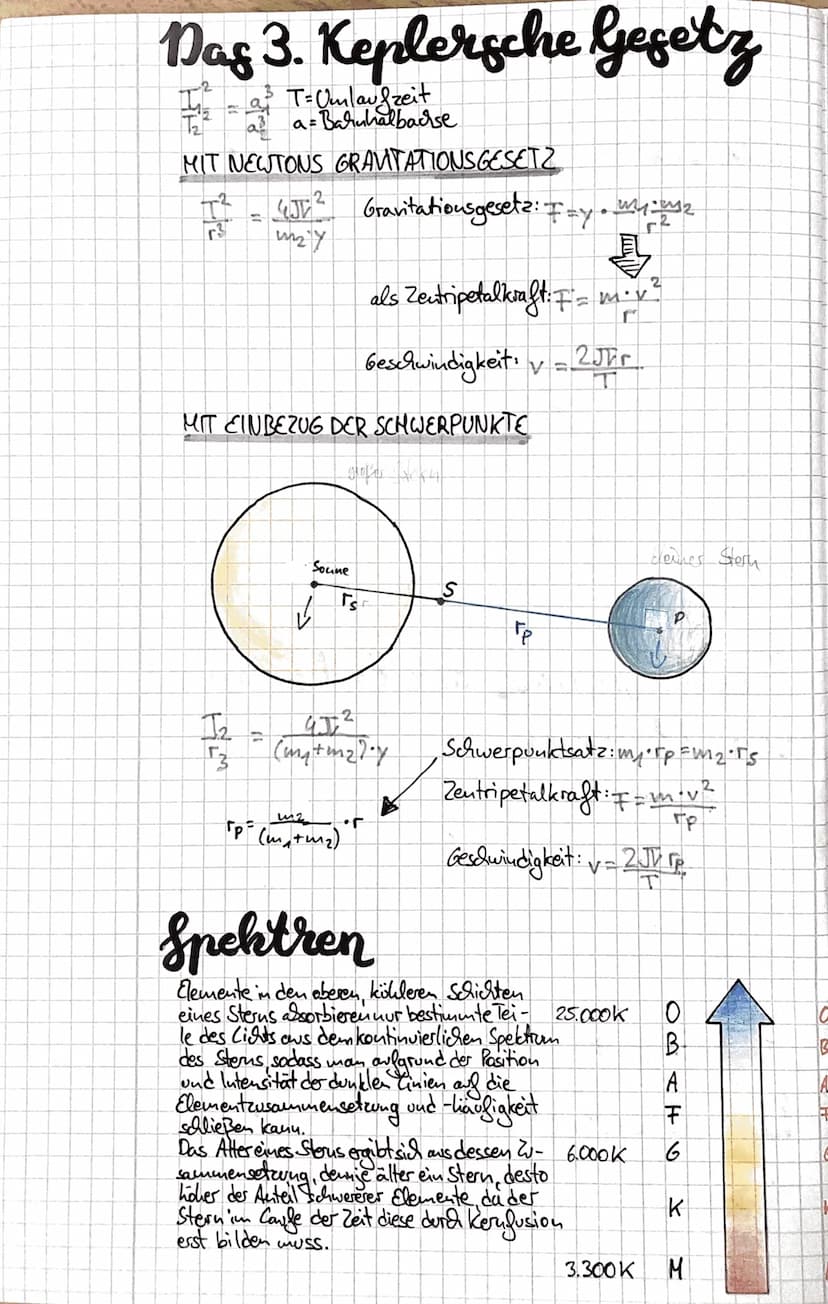 Das 3. Keplersche Gesetz
T₁²/T₂² = a₁³/a₂³ T=Umlaufzeit
a=Bahnhalbachse
MIT NEWTONS GRAVITATIONSGESETZ
T²/r³ = 4π²/m₂·γ Gravitationsgesetz: F=γ·m₁·m₂/r²
als Zentripetalkraft: F=m·v²/r
Geschwindigkeit: v=2πr/T
MIT EINBEZUG DER SCHWERPUNKTE
großer
kleiner Stern
Sonne
rₛ
S
rₚ
P
T₂/r₃ = 4π²/(m₁+m₂)·γ
Schwerpunktsatz: m₁·rₚ=m₂·rₛ
Zentripetalkraft: F=m·v²/rₚ
rₚ=m₂/(m₁+m₂)·r
Geschwindigkeit: v=2πrₚ/T
Spektren
Elemente in den oberen, kühleren Schichten
eines Sterns absorbieren nur bestimmte Tei-
le des Lichts aus dem kontinuierlichen Spektrum
des Sterns, sodass man aufgrund der Position
und Intensität der dunklen Linien auf die
Elementzusammensetzung und -häufigkeit
schließen kann.
Das Alter eines Sterns ergibt sich aus dessen Zu-
sammensetzung, denn je älter ein Stern, desto
höher der Anteil schwererer Elemente, da der
Stern im Laufe der Zeit diese durch Kernfusion
erst bilden muss.
25.000K O
B
A
F
6.000K G
K
3.300K M